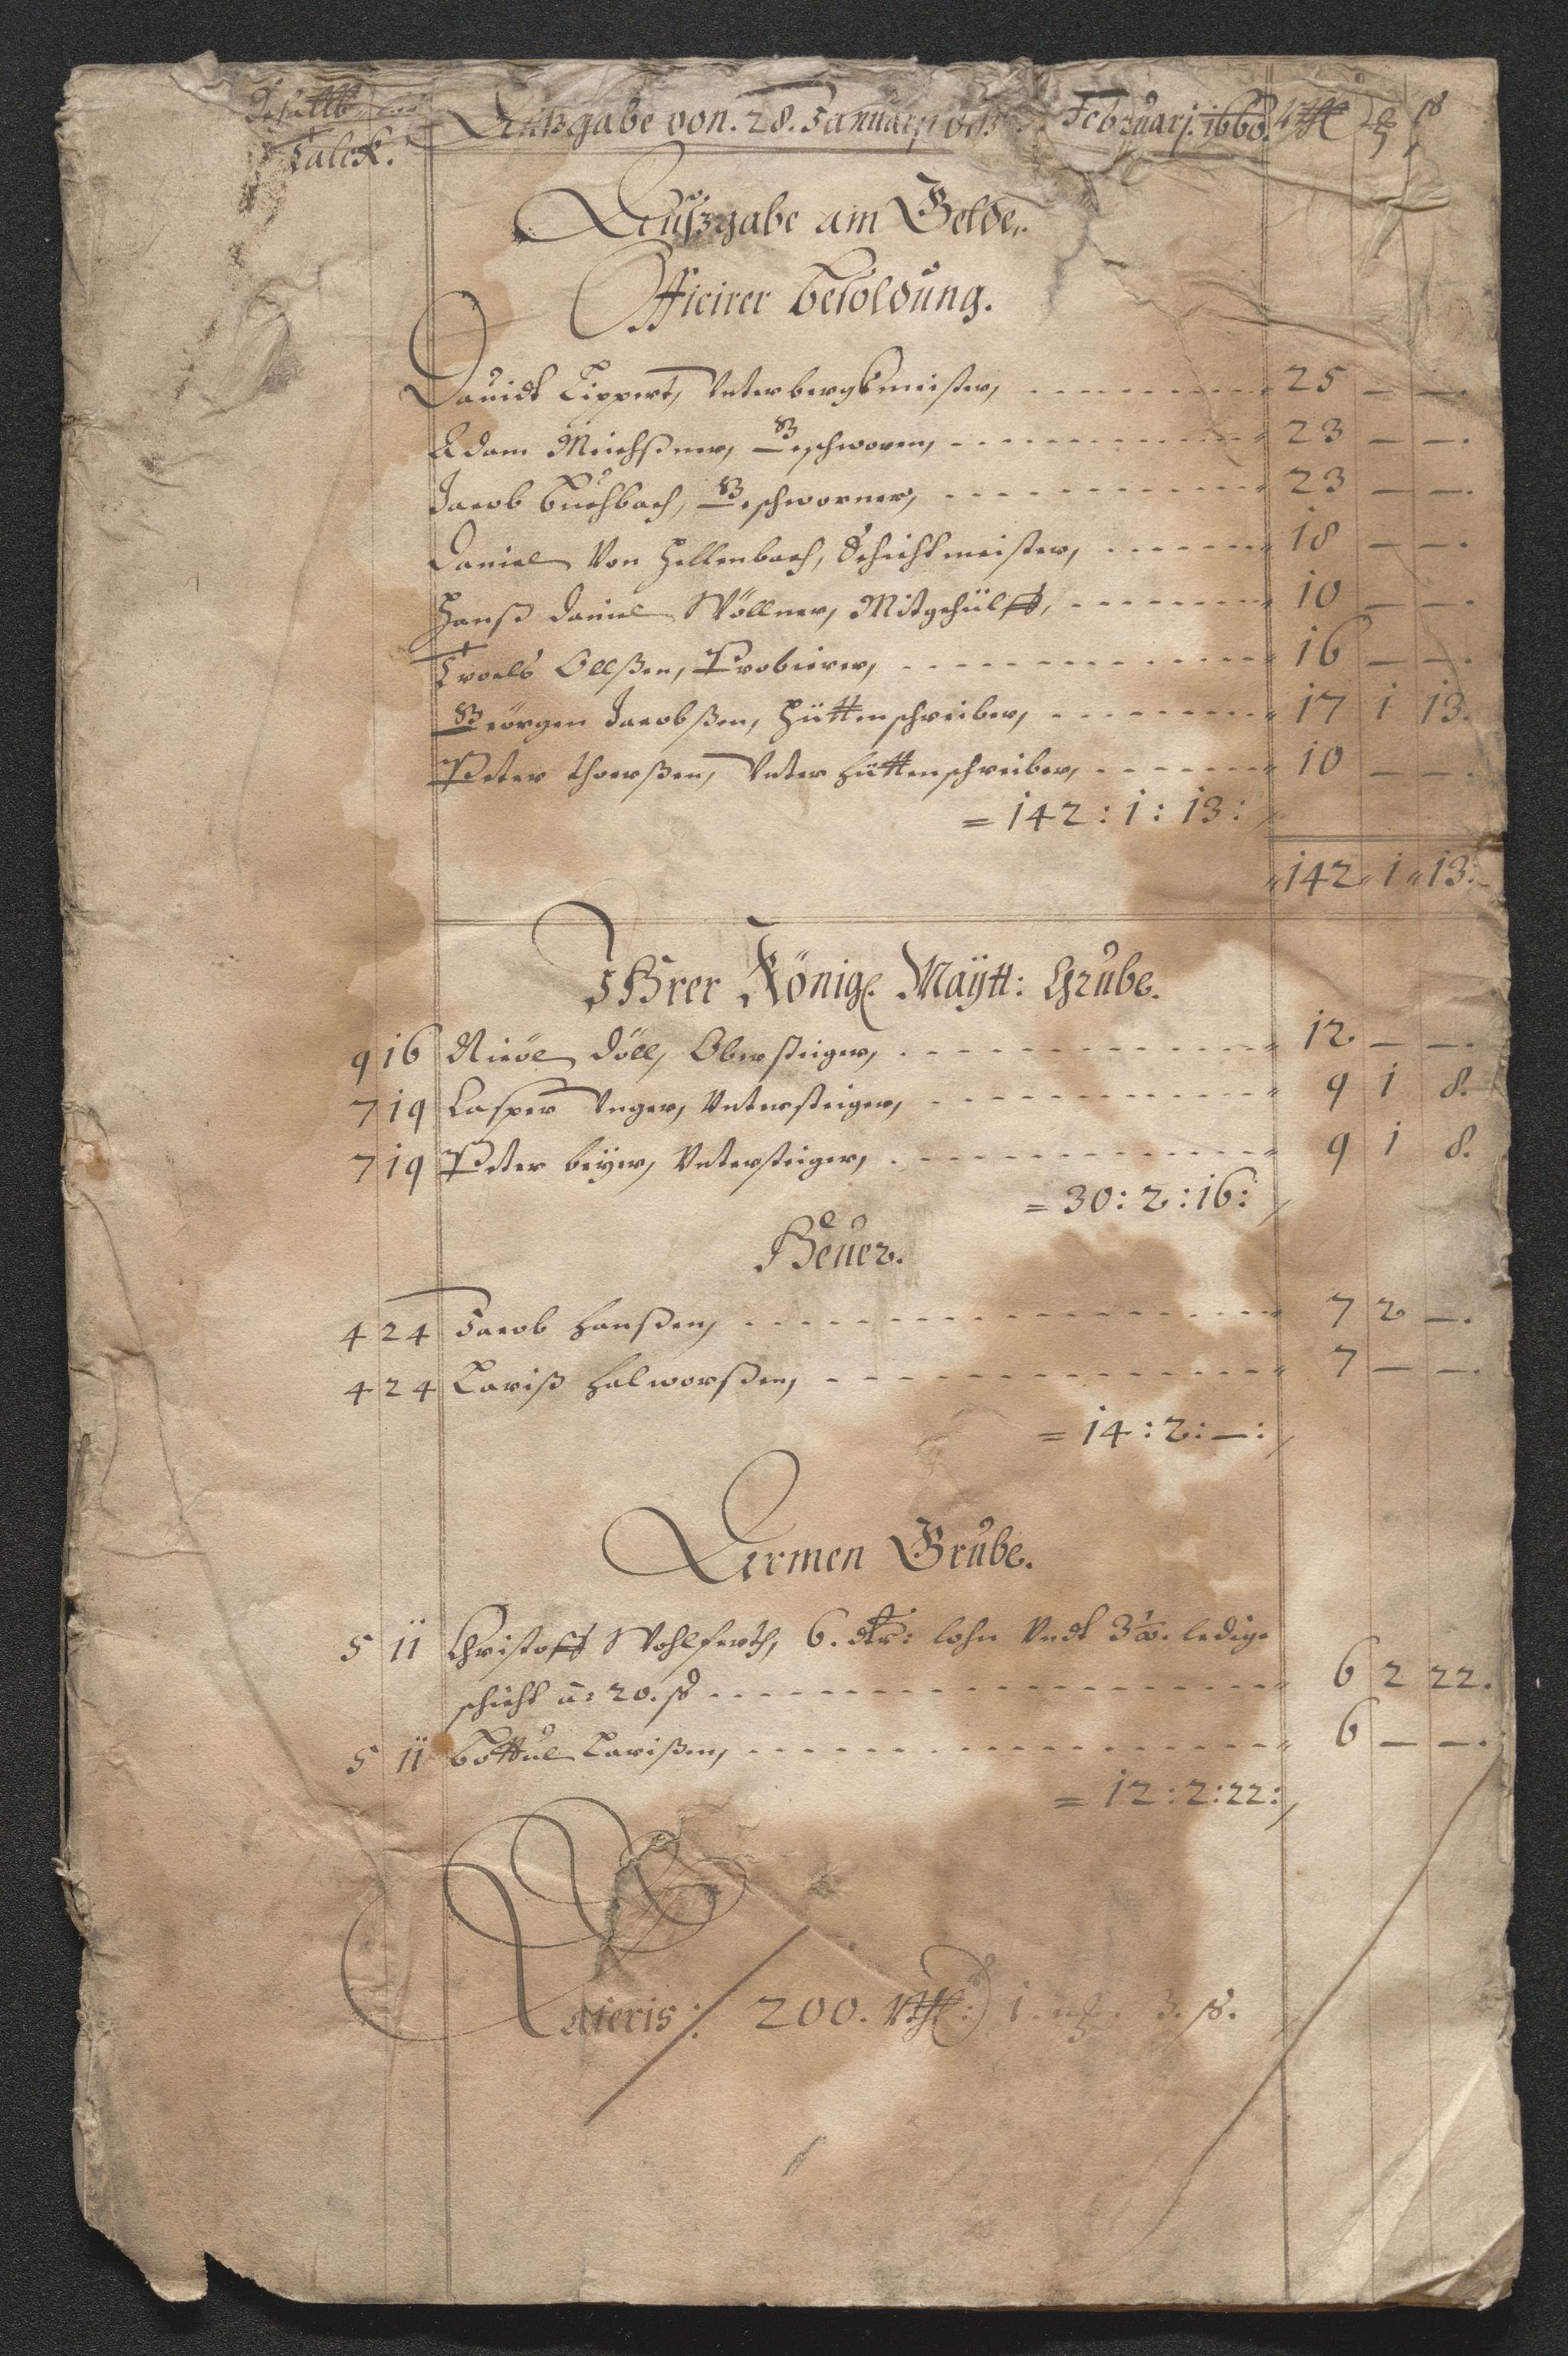 Talck.
Außgabe von. 28. Januarj Februarj. 1660. Rthl
Außgabe am Gelde.
Officirer besoldung.
Dauidt Lippert, Vnterbergkmeister, 25 — —.
Adam Meichßner, Geschworen, 23 — —.
Jacob buchbach, Geschworner, 23 — —.
Daniel Von Hellenbach, Schichtmeister, 18 — —.
Hanß Daniel Wöllner, Mitgehülff, 10 — —.
Troels Ollßen, Probierer, 16 — —.
Geörgen Jacobßen, Hüttenschreiber, 17 1 13.
Peter thoerßen, Vnter hüttenschreiber, 10 — —.
= 142 : 1 : 13 :
142 1 13:
Ihrer Königl. Maÿtt: Grube.
9 16 Nicol Döll, Obersteiger, 12 — —.
7 19 Casper Vnger, Vntersteiger, 9 1 8.
7 19 Peter beÿer, Vntersteiger, 9 1 8.
= 30 : 2 : 16 :
Heuer.
4 24 Jacob Hanßen, 7 2 —.
4 24 Lariß Halworßen, 7 — —.
= 14 : 2 : — :
Armen Grube.
5 11 Christoff Wohlfarth, 6. Rthlr: lohn Vndt 3 ledige
schicht â: 20. ß 6 2 22.
5 11 bottul Larißen, 6 — —.
= 12 : 2 : 22 :
Lateris: 200. Rthl: 1. 3. ß.